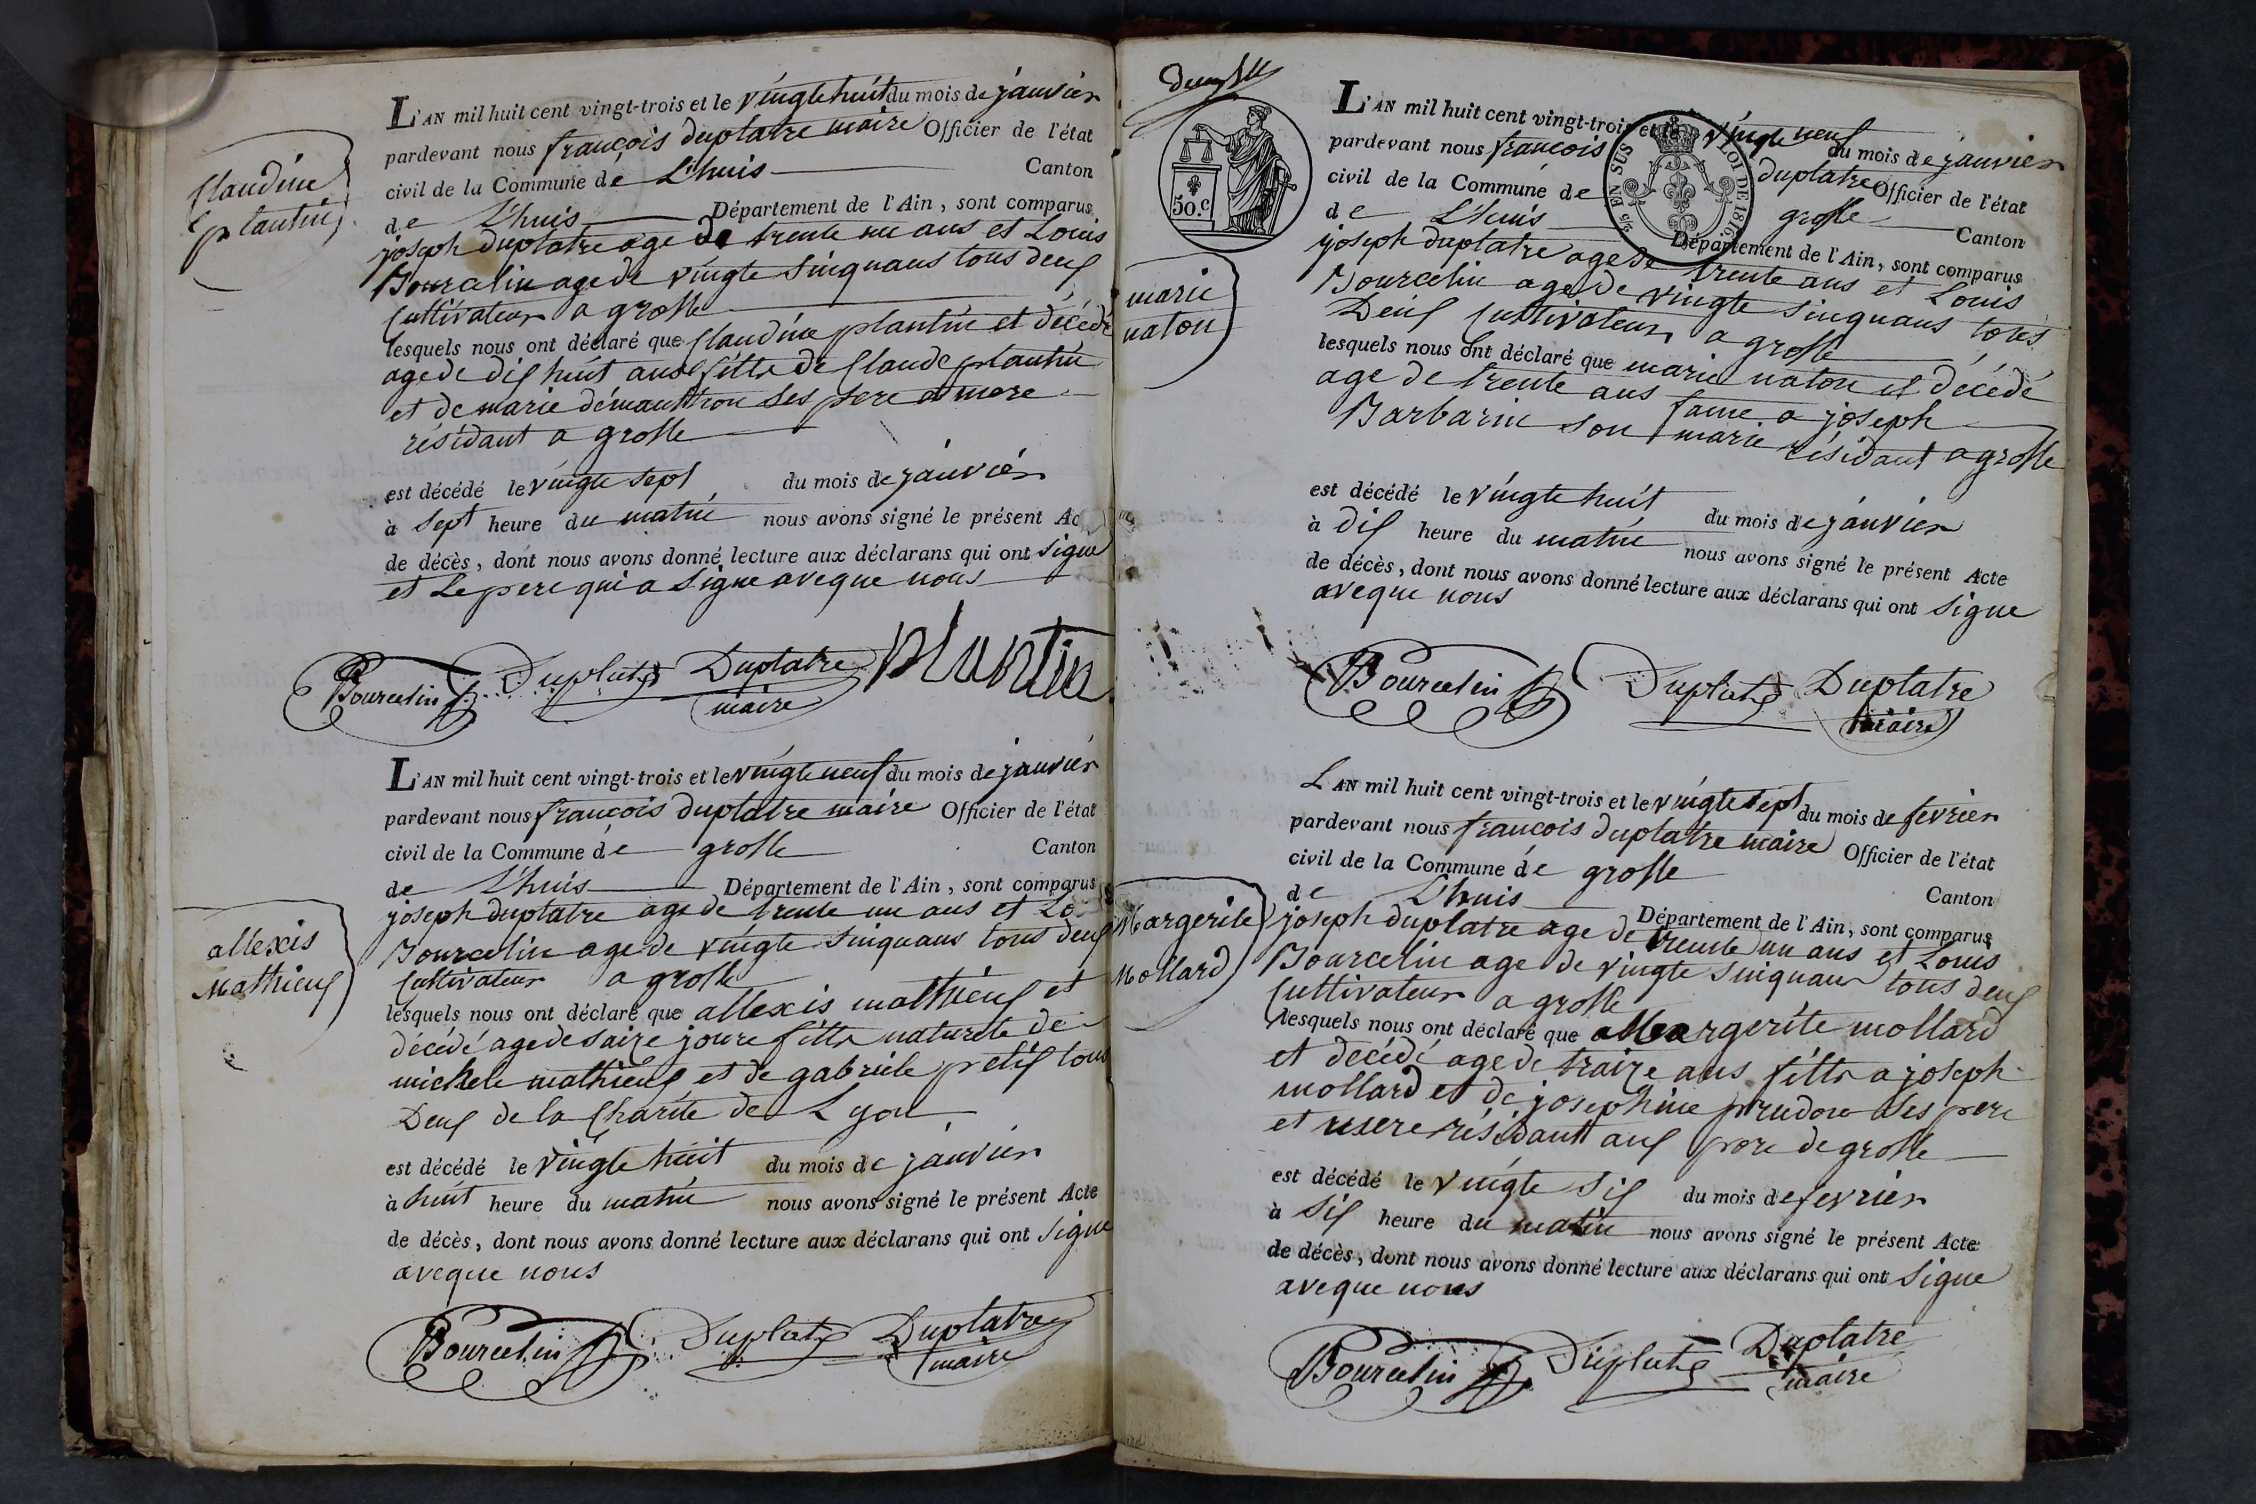 Claudine
plantin
L'AN mil huit cent vingt-trois et le vingte huit du mois de janvier
pardevant nous françois duplatre maire Officier de l'état
civil de la Commune de L'huis Canton
de L'huis Département de l'Ain, sont comparus
joseph duplatre age de trente un ans et Louis
Bourcelin age de vingte sinquans tous deus
Cultivateur a grosle
lesquels nous ont déclaré que Claudine plantin et décédé
age de dis huit ans fille de Claude plantin
et de marie ses pere et mere
résidant a grosle
est décédé le vingte sept du mois de janvier
à sept heure du matin nous avons signé le présent
de décès, dont nous avons donné lecture aux déclarans qui ont signe
et Le pere qui a signe aveque nous
Bourcelin Duplatre Duplatre Plantin
maire
allexis
Mathieus
L'AN mil huit cent vingt-trois et le vingte neuf du mois de janvier
pardevant nous françois duplatre maire Officier de l'état
civil de la Commune de grosle Canton
de L'huis Département de l'Ain, sont comparus
joseph duplatre age de trente un ans et
Bourcelin age de vingte sinquans tous deus
Cultivateur a grosle
lesquels nous ont déclaré que allexis mathieus et
décédé age de saize joure fills naturele de
michele mathieus et de gabriele petis tous
Deus de la Charite de Lyon
est décédé le vingte huit du mois de janvier
à huit heure du matin nous avons signé le présent Acte
de décès, dont nous avons donné lecture aux déclarans qui ont signe
aveque nous
Bourcelin Duplatre Duplatre
maire
50.c
EN SUS LOI DE 1816.
marie
naton
L'AN mil huit cent vingt-trois et le vingte neuf du mois de janvier
pardevant nous françois duplatre Officier de l'état
civil de la Commune de grosle Canton
de L'huis Département de l'Ain, sont comparus
joseph duplatre age de trente ans et Louis
Bourcelin age de vingte sinquans tous
Deus Cultivateur a grosle
lesquels nous ont déclaré que marie naton et décédé
age de trente ans fame a joseph
Barbarin son marie résidant a grosle
est décédé le vingte huit du mois de janvier
à dis heure du matin nous avons signé le présent Acte
de décès, dont nous avons donné lecture aux déclarans qui ont signe
aveque nous
Bourcelin Duplatre Duplatre
maire
Margerite
Mollard
L'AN mil huit cent vingt-trois et le vingte sept du mois de fevrier
pardevant nous françois duplatre maire Officier de l'état
civil de la Commune de grosle Canton
de L'huis Département de l'Ain, sont comparus
joseph duplatre age de trente un ans et Louis
Bourcelin age de vingte sinquans tous deus
Cultivateur a grosle
lesquels nous ont déclaré que Margerite mollard
et decédé age de traize ans fills a joseph
mollard et de josephine prudon ses pere
et mere résidant aus pore de grosle
est décédé le vingte sis du mois de fevrier
à sis heure du matin nous avons signé le présent Acte
de décès, dont nous avons donné lecture aux déclarans qui ont signe
aveque nous
Bourcelin Duplatre Duplatre
maire